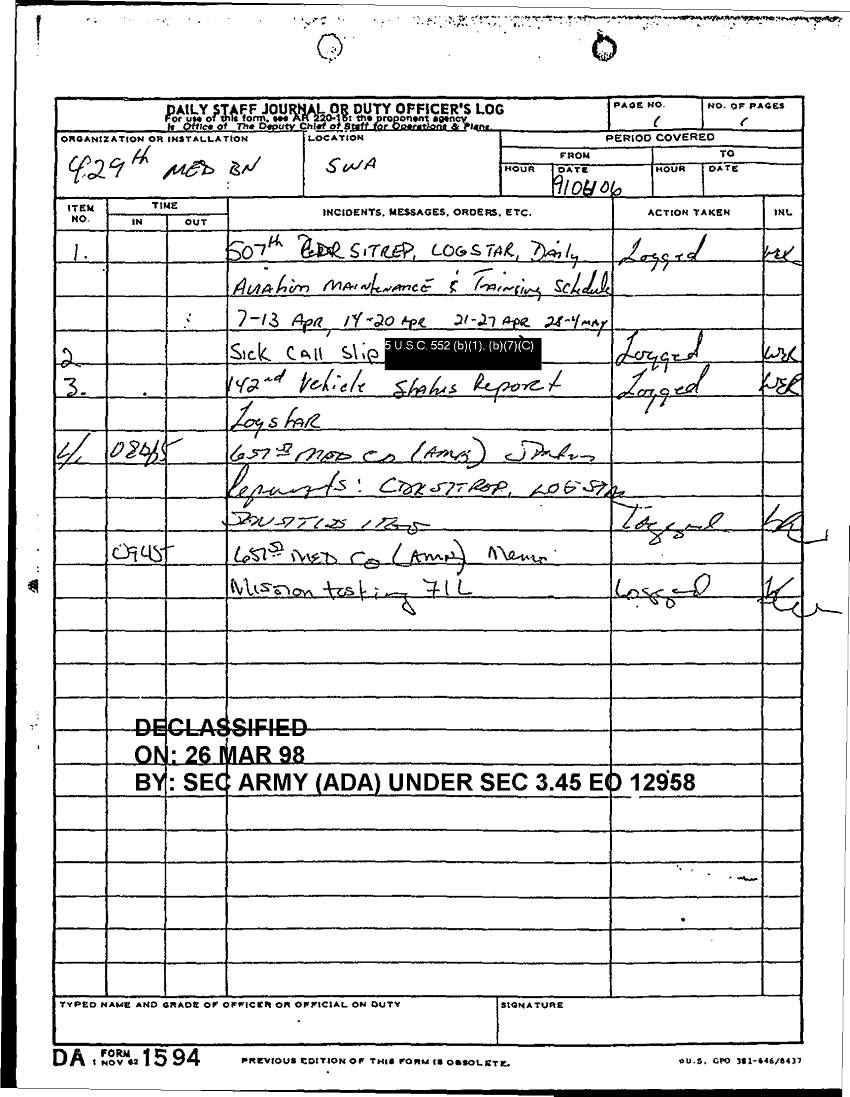 DAILY STAFF JOURNAL OR DUTY OFFICER'S LOG
For use of this form, see AR 220-15; the proponent agency
is Office of The Deputy Chief of Staff for Operations & Plans.
PAGE NO.
1
NO. OF PAGES
1
ORGANIZATION OR INSTALLATION
429th MED BN
LOCATION
SWA
PERIOD COVERED
FROM
TO
HOUR
DATE
910406
HOUR
DATE
ITEM NO.
TIME
IN
OUT
INCIDENTS, MESSAGES, ORDERS, ETC.
ACTION TAKEN
INL
1. 507th CDR SITREP, LOGSTAR, Daily Logged WER
Aviation MAINTENANCE & Training Schedule
7-13 Apr, 14-20 Apr 21-27 APR 28-4 MAY
2 Sick CAll Slip 5 U.S.C. 552 (b)(1), (b)(7)(C) Logged WER
3. 142nd Vehicle Status Report Logged WER
LogstAR
4. 657th MED CO (AMB)
CDR SITREP, LOGSTAR
Logged
0945 657th MED CO (AMB) Memo
Mission tasking 71L Logged
DECLASSIFIED
ON: 26 MAR 98
BY: SEC ARMY (ADA) UNDER SEC 3.45 EO 12958
TYPED NAME AND GRADE OF OFFICER OR OFFICIAL ON DUTY
SIGNATURE
DA FORM 1 NOV 62 1594
PREVIOUS EDITION OF THIS FORM IS OBSOLETE.
☆U.S. GPO 381-646/8437